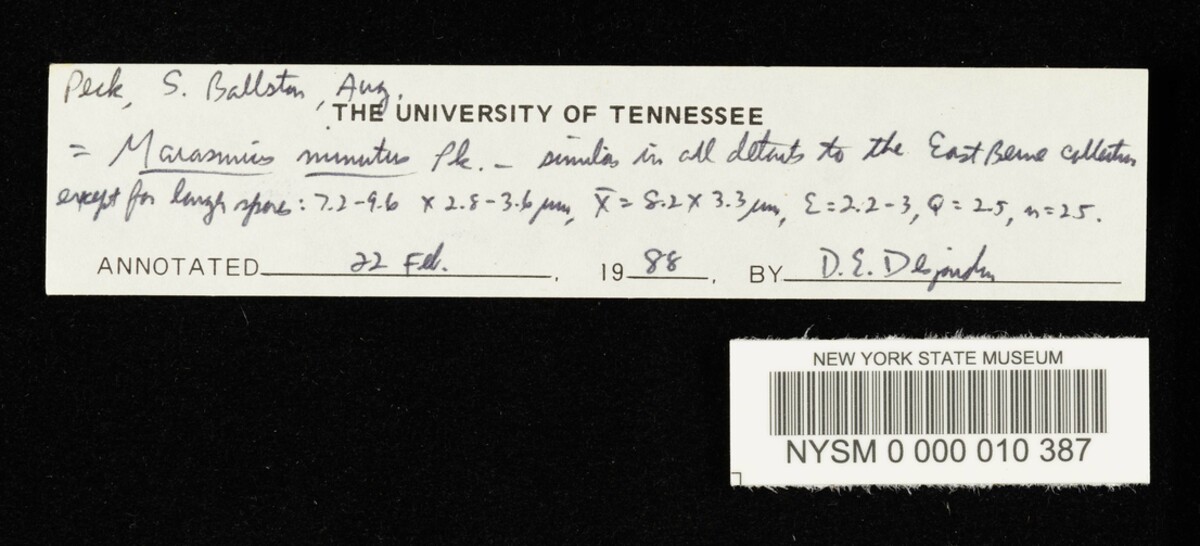 Peck, S. Ballston, Aug.
THE UNIVERSITY OF TENNESSEE
= Marasmius minutus Pk. — similar in all details to the East Berne collection
except for longer spores: 7.2-9.6 x 2.8-3.6 µm, x̄ = 8.2 x 3.3 µm, E = 2.2-3, Q = 2.5, n = 25.
ANNOTATED 22 Feb. , 19 88 . BY D.E. Desjardin
NEW YORK STATE MUSEUM
NYSM 0 000 010 387